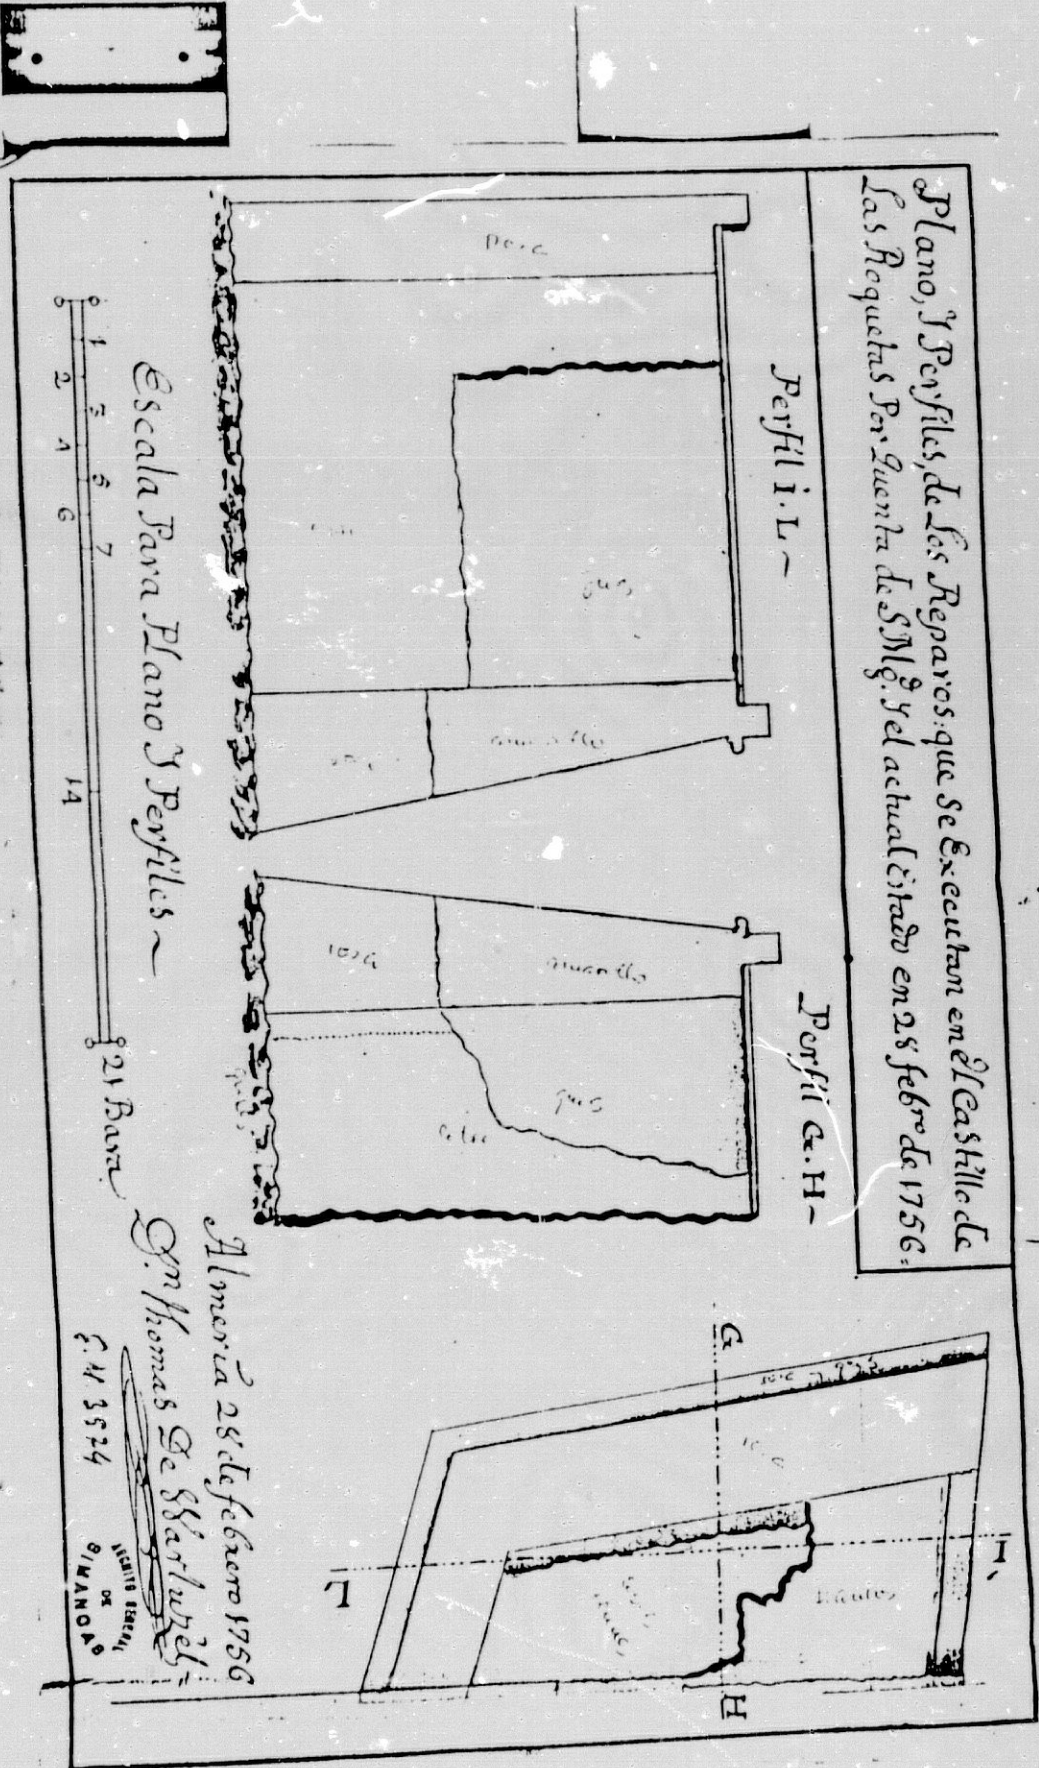 Plano, Y Perfiles, de Los Reparos: que Se Executan en el Castillo de
Las Roquetas Por Quenta de S. Mgd. Y el actual Estado en 28 febro de 1756=
Perfil i. L ~
Perfil G. H ~
amarillo
gris
rosa
amarillo
gris
G
H
I
L
Escala Para PLano Y Perfiles ~
1 2 3 4 5 6 7 14 21 Bara
Almeria 28 de febrero 1756
Dn. Thomas De Warluzèl=
ARCHIVO GENERAL
DE
SIMANCAS